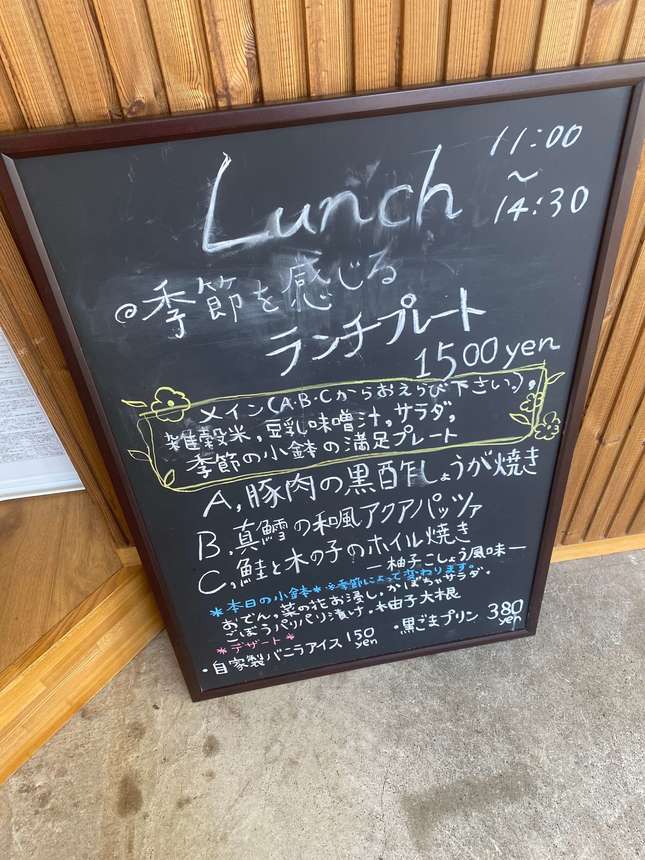 Lunch
11:00
~
14:30
@季節を感じる
ランチプレート
1500yen
メイン(A・B・Cからおえらび下さい。)、
雑穀米、豆乳味噌汁、サラダ、
季節の小鉢の満足プレート
A、豚肉の黒酢しょうが焼き
B、真鱈の和風アクアパッツァ
C、鮭と木の子のホイル焼き
ー柚子こしょう風味ー
*本日の小鉢* ※季節によって変わります。
おでん、菜の花お浸し、かぼちゃサラダ、
ごぼうパリパリ漬け、柚子大根
*デザート*
・自家製バニラアイス 150yen
・黒ごまプリン 380yen